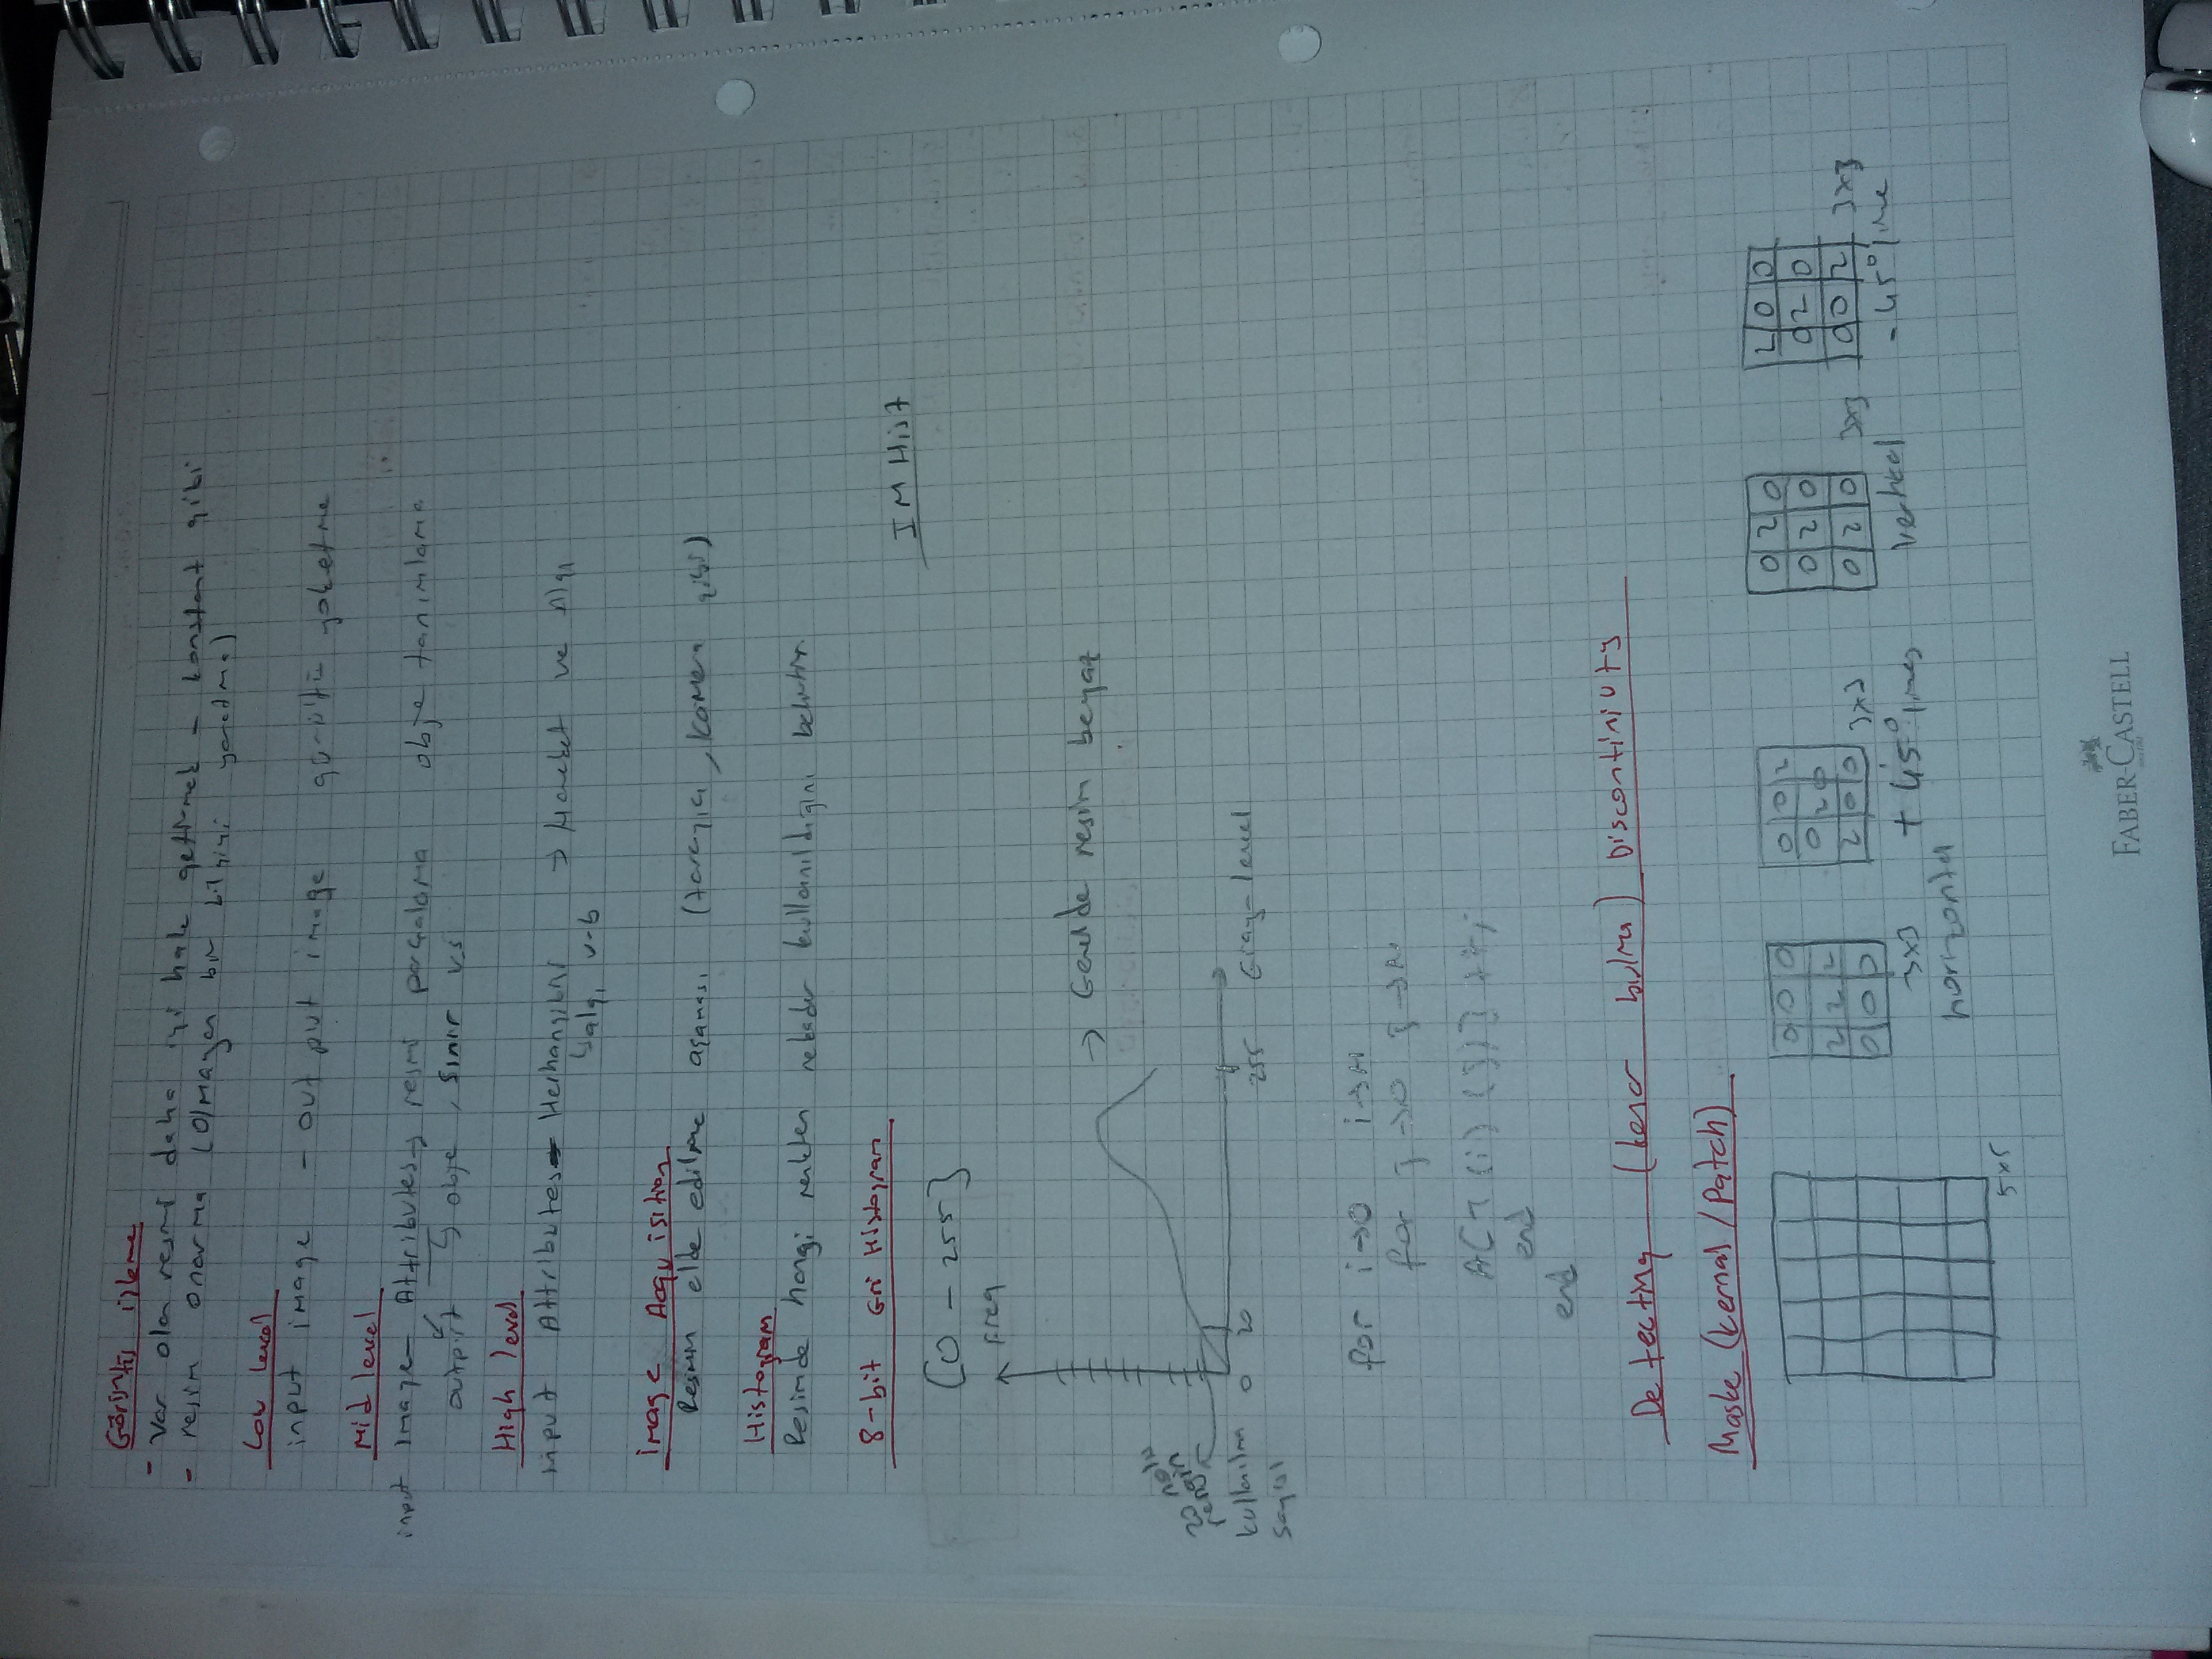 Görüntü işleme
- Var olan resmi daha iyi hale getirmek - konstant gibi
- resim onarma (Olmayan bir bilgiyi yaratma)
Low level
input image - out put image gürültü yoketme
Mid level
input image - Attributes → resmi parçalama obje tanımlama
output ↳ obje, sınır vs
High level
input Attributes - Herhangibiri → Hareket ve Algı
↳ algı v-b
image Acquisition
Resmin elde edilme aşaması (tarayıcı, kamera gibi)
Histogram
Resimde hangi renkten nekadar kullanıldığını belirtir
8-bit Gri Histogram
IM Hist
[0 - 255]
Freq
→ Genelde resim beyaz
20 nolu
rengin
kullanılma
sayısı
0 20 255 Gray-level
for i→0 i→M
for j→0 j→N
A[I(i)(j)]++;
end
end
Detecting (kenar bulma) Discontiniuty
Maske (kernal/Patch)
0 0 0
2 2 2
0 0 0
3x3
horizontal
0 0 2
0 2 0
2 0 0
3x3
+ 45° lines
0 2 0
0 2 0
0 2 0
3x3
vertical
2 0 0
0 2 0
0 0 2
3x3
- 45° line
5x5
FABER-CASTELL